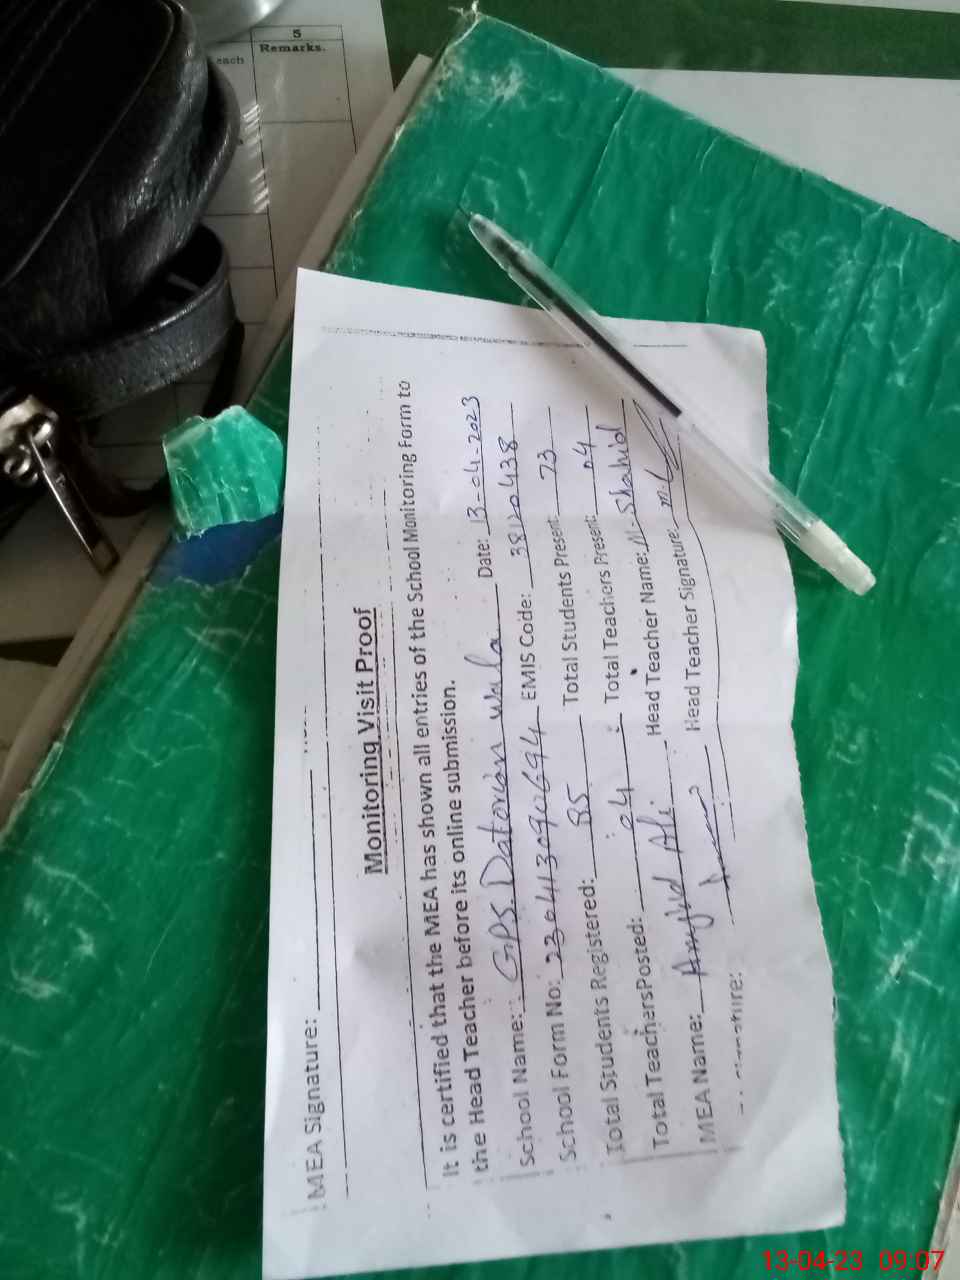 5
Remarks.
each
MEA Signature:
Monitoring Visit Proof
It is certified that the MEA has shown all entries of the School Monitoring Form to
the Head Teacher before its online submission.
School Name: GPS. Datorian wala Date: 13-04-2023
School Form No: 230413090694 EMIS Code: 38120438
Total Students Registered: 85 Total Students Present: 73
Total TeachersPosted: 04 Total Teachers Present: 04
MEA Name: Amjud Ali Head Teacher Name: M. Shahid
Head Teacher Signature:
13-04-23 09:07